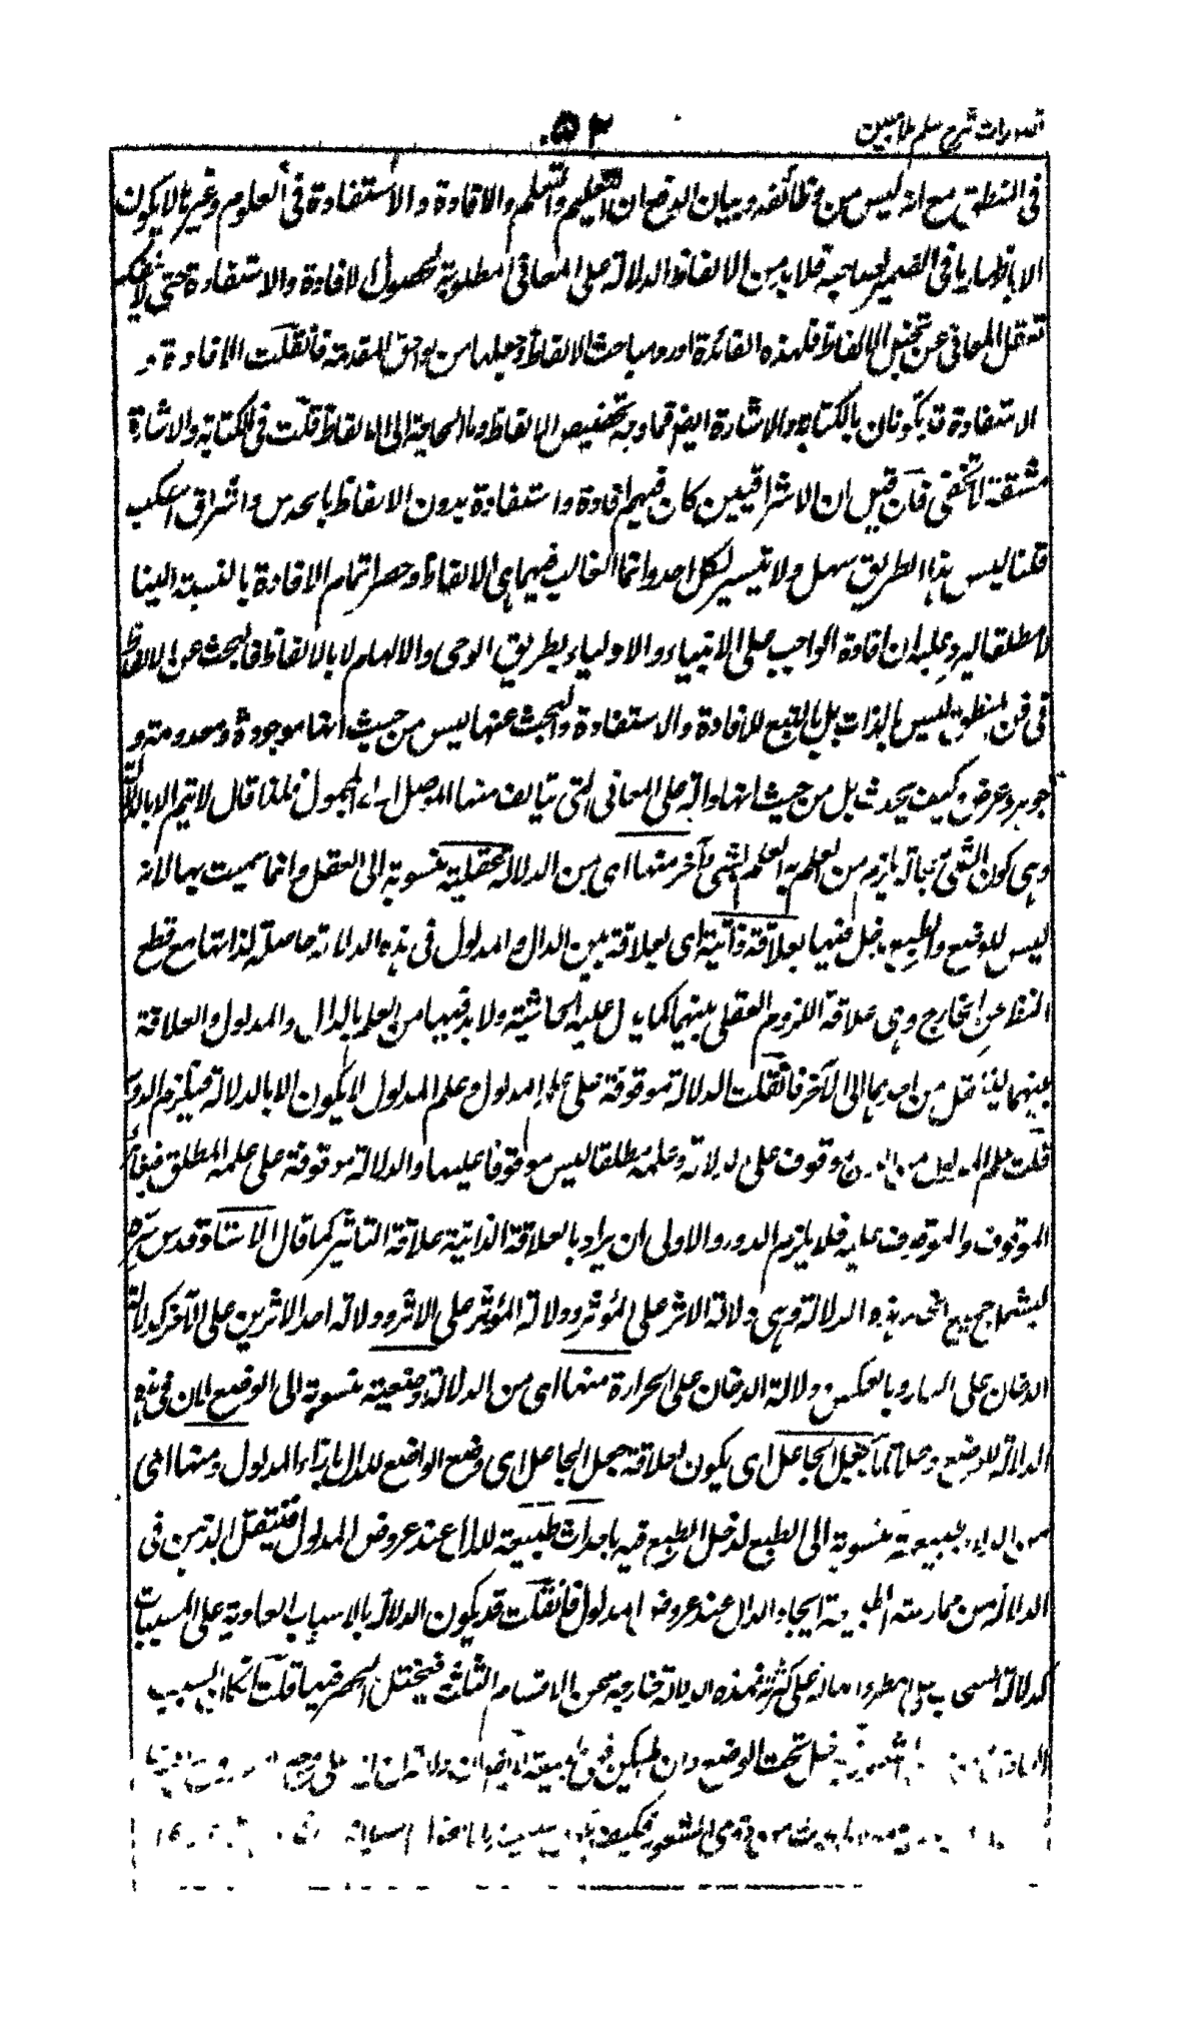 تصورات شرح سلم ملا مبين
٥٣
فى المنطق مع انه ليس من وظائفه وبيان الدفع ان التعليم والتعلم والافادة والاستفادة فى العلوم وغيرها لا يكون
الا باظهار ما فى الضمير لصاحبه فلا بد من الالفاظ الدالة على المعانى المطلوبة لحصول الافادة والاستفادة حتى لا ينفك
تعقل المعانى عن تخيل الالفاظ فلهذه الفائدة اورد مباحث الالفاظ وجعلها من لواحق المقدمة فان قلت الافادة و
الاستفادة قد يكونان بالكتابة والاشارة ايضا فما وجه تخصيص الالفاظ وما الحاجة الى الالفاظ قلت فى الكتابة والاشارة
مشقة لا تخفى فان قيل ان الاشراقيين كان فيهم افادة واستفادة بدون الالفاظ بالحدس واشراق
قلنا ليس هذا الطريق سهل ولا تيسير لكل احد وانما الغالب فيهما هى الالفاظ وحصر اتمام الافادة بالنسبة الينا
لا مطلقا ليرد عليه ان افادة الواجب على الانبياء والاولياء بطريق الوحى والالهام لا بالالفاظ فالبحث عن الالفاظ
فى فن المنطق ليس بالذات بل بالتبع للافادة والاستفادة والبحث عنها ليس من حيث انها موجودة ومعدومة و
جوهر وعرض وكيف يحدث بل من حيث انها دالة على المعانى التى يتالف منها الموصل الى المجهول فلذا قال لا يتم الا بالدلالة
وهى كون الشئ بحالة يلزم من العلم به العلم بشئ آخر منها اى من الدلالة عقلية منسوبة الى العقل وانما سميت بها لانه
ليس للوضع والطبع دخل فيها بعلاقة ذاتية اى لعلاقة بين الدال والمدلول فى هذه الدلالة حاصلة لذاتها مع قطع
النظر عن الخارج وهى علاقة اللزوم العقلى بينهما كما يدل عليه الحاشية ولا بد فيها من العلم بالدال والمدلول والعلاقة
بينهما لينتقل من احدهما الى الآخر فان قلت الدلالة موقوفة على علم المدلول وعلم المدلول لا يكون الا بالدلالة فيلزم الدور
قلت علم المدلول من الدال موقوف على دلالته وعلمه مطلقا ليس موقوفا عليها والدلالة موقوفة على علمه المطلق فيغاير
الموقوف والموقوف عليه فلا يلزم الدور والاولى ان يراد بالعلاقة الذاتية علاقة التاثير كما قال الاستاذ قدس سره
ليشمل جميع انحاء هذه الدلالة وهى دلالة الاثر على المؤثر ودلالة المؤثر على الاثر ودلالة احد الاثرين على الآخر كدلالة
الدخان على النار وبالعكس ودلالة الدخان على الحرارة منها اى من الدلالة وضعية منسوبة الى الوضع لان فى هذه
الدلالة للوضع دخلا تاما بجعل الجاعل اى يكون لعلاقة جعل الجاعل اى وضع الواضع للدال بازاء المدلول ومنها اى
من الدلالة طبيعية منسوبة الى الطبع لدخل الطبع فيه باحداث طبيعة للدال عند عروض المدلول فينتقل الذهن فى
الدلالة من ممارسة الطبيعة ايجاد الدال عند عروض المدلول فان قلت قد يكون الدلالة بالاسباب العادية على المسببات
كدلالة السحاب على المطر على كثرته فهذه الدلالة خارجة عن الاقسام الثلثة فيختل الحصر فيها قلت السبب
تحت الوضع وان لم يكن